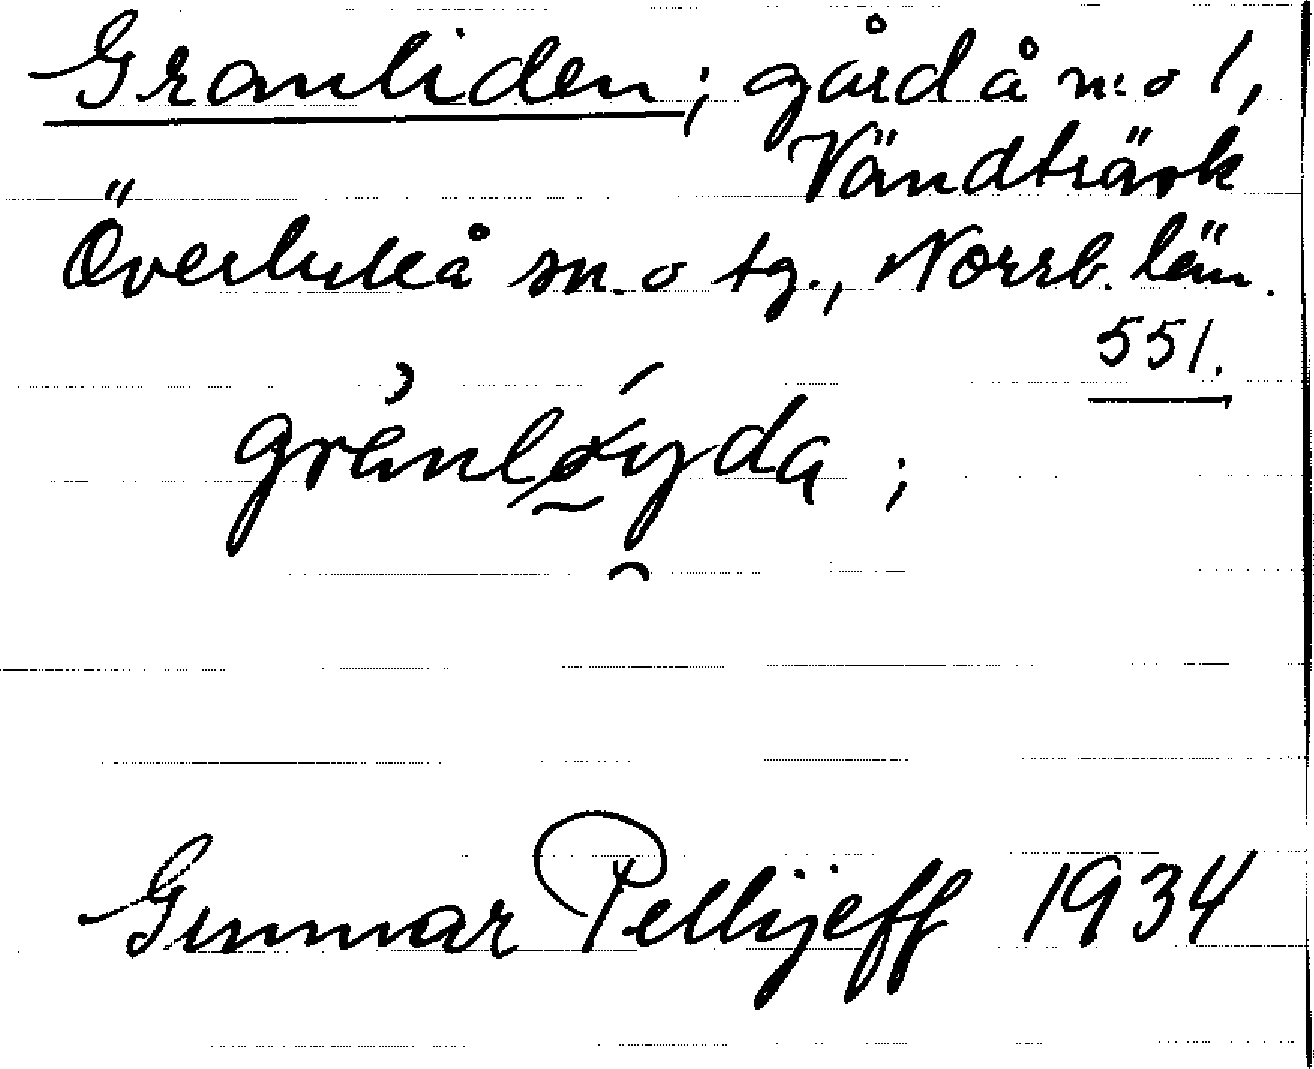 Granliden; gård å n:o 1,
Vändträsk
Överluleå sn. o tg., Norrb. län.
551.
grànlǿyda ;
Gunnar Pellijeff 1934